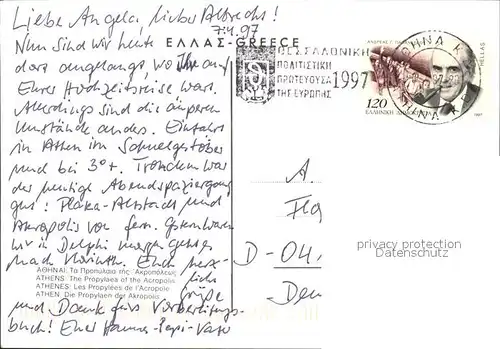 Liebe Angela, lieber Albrecht!
7.4.97
Nun sind wir heute
dort angelangt, wo Ihr auf
Eurer Hochzeitsreise wart.
Allerdings sind die äußeren
Umstände anders. Einfahrt
in Athen im Schneegestöber
und bei 3°+. Trotzdem war
der heutige Abendspaziergang
gut! Plaka-Altstadt und
Akropolis von fern. Gestern waren
wir in Delphi morgen geht es
nach Korinth. Euch herz-
liche
Grüße
und Dank fürs Vorbereitungs-
buch! Euer Hannes-Papi-Vater
ΕΛΛΑΣ-GREECE
ΘΕΣΣΑΛΟΝΙΚΗ
ΠΟΛΙΤΙΣΤΙΚΗ
ΠΡΩΤΕΥΟΥΣΑ
ΤΗΣ ΕΥΡΩΠΗΣ
1997
ΑΘΗΝΑ Κ
HELLAS
120
1997
A.
D-04.
privacy protection
Datenschutz
ΑΘΗΝΑΙ: Τα Προπύλαια της Ἀκροπόλεως
ATHENS: The Propylaea of the Acropolis
ATHENES: Les Propylées de l'Acropole
ATHEN: Die Propylaen der Akropolis